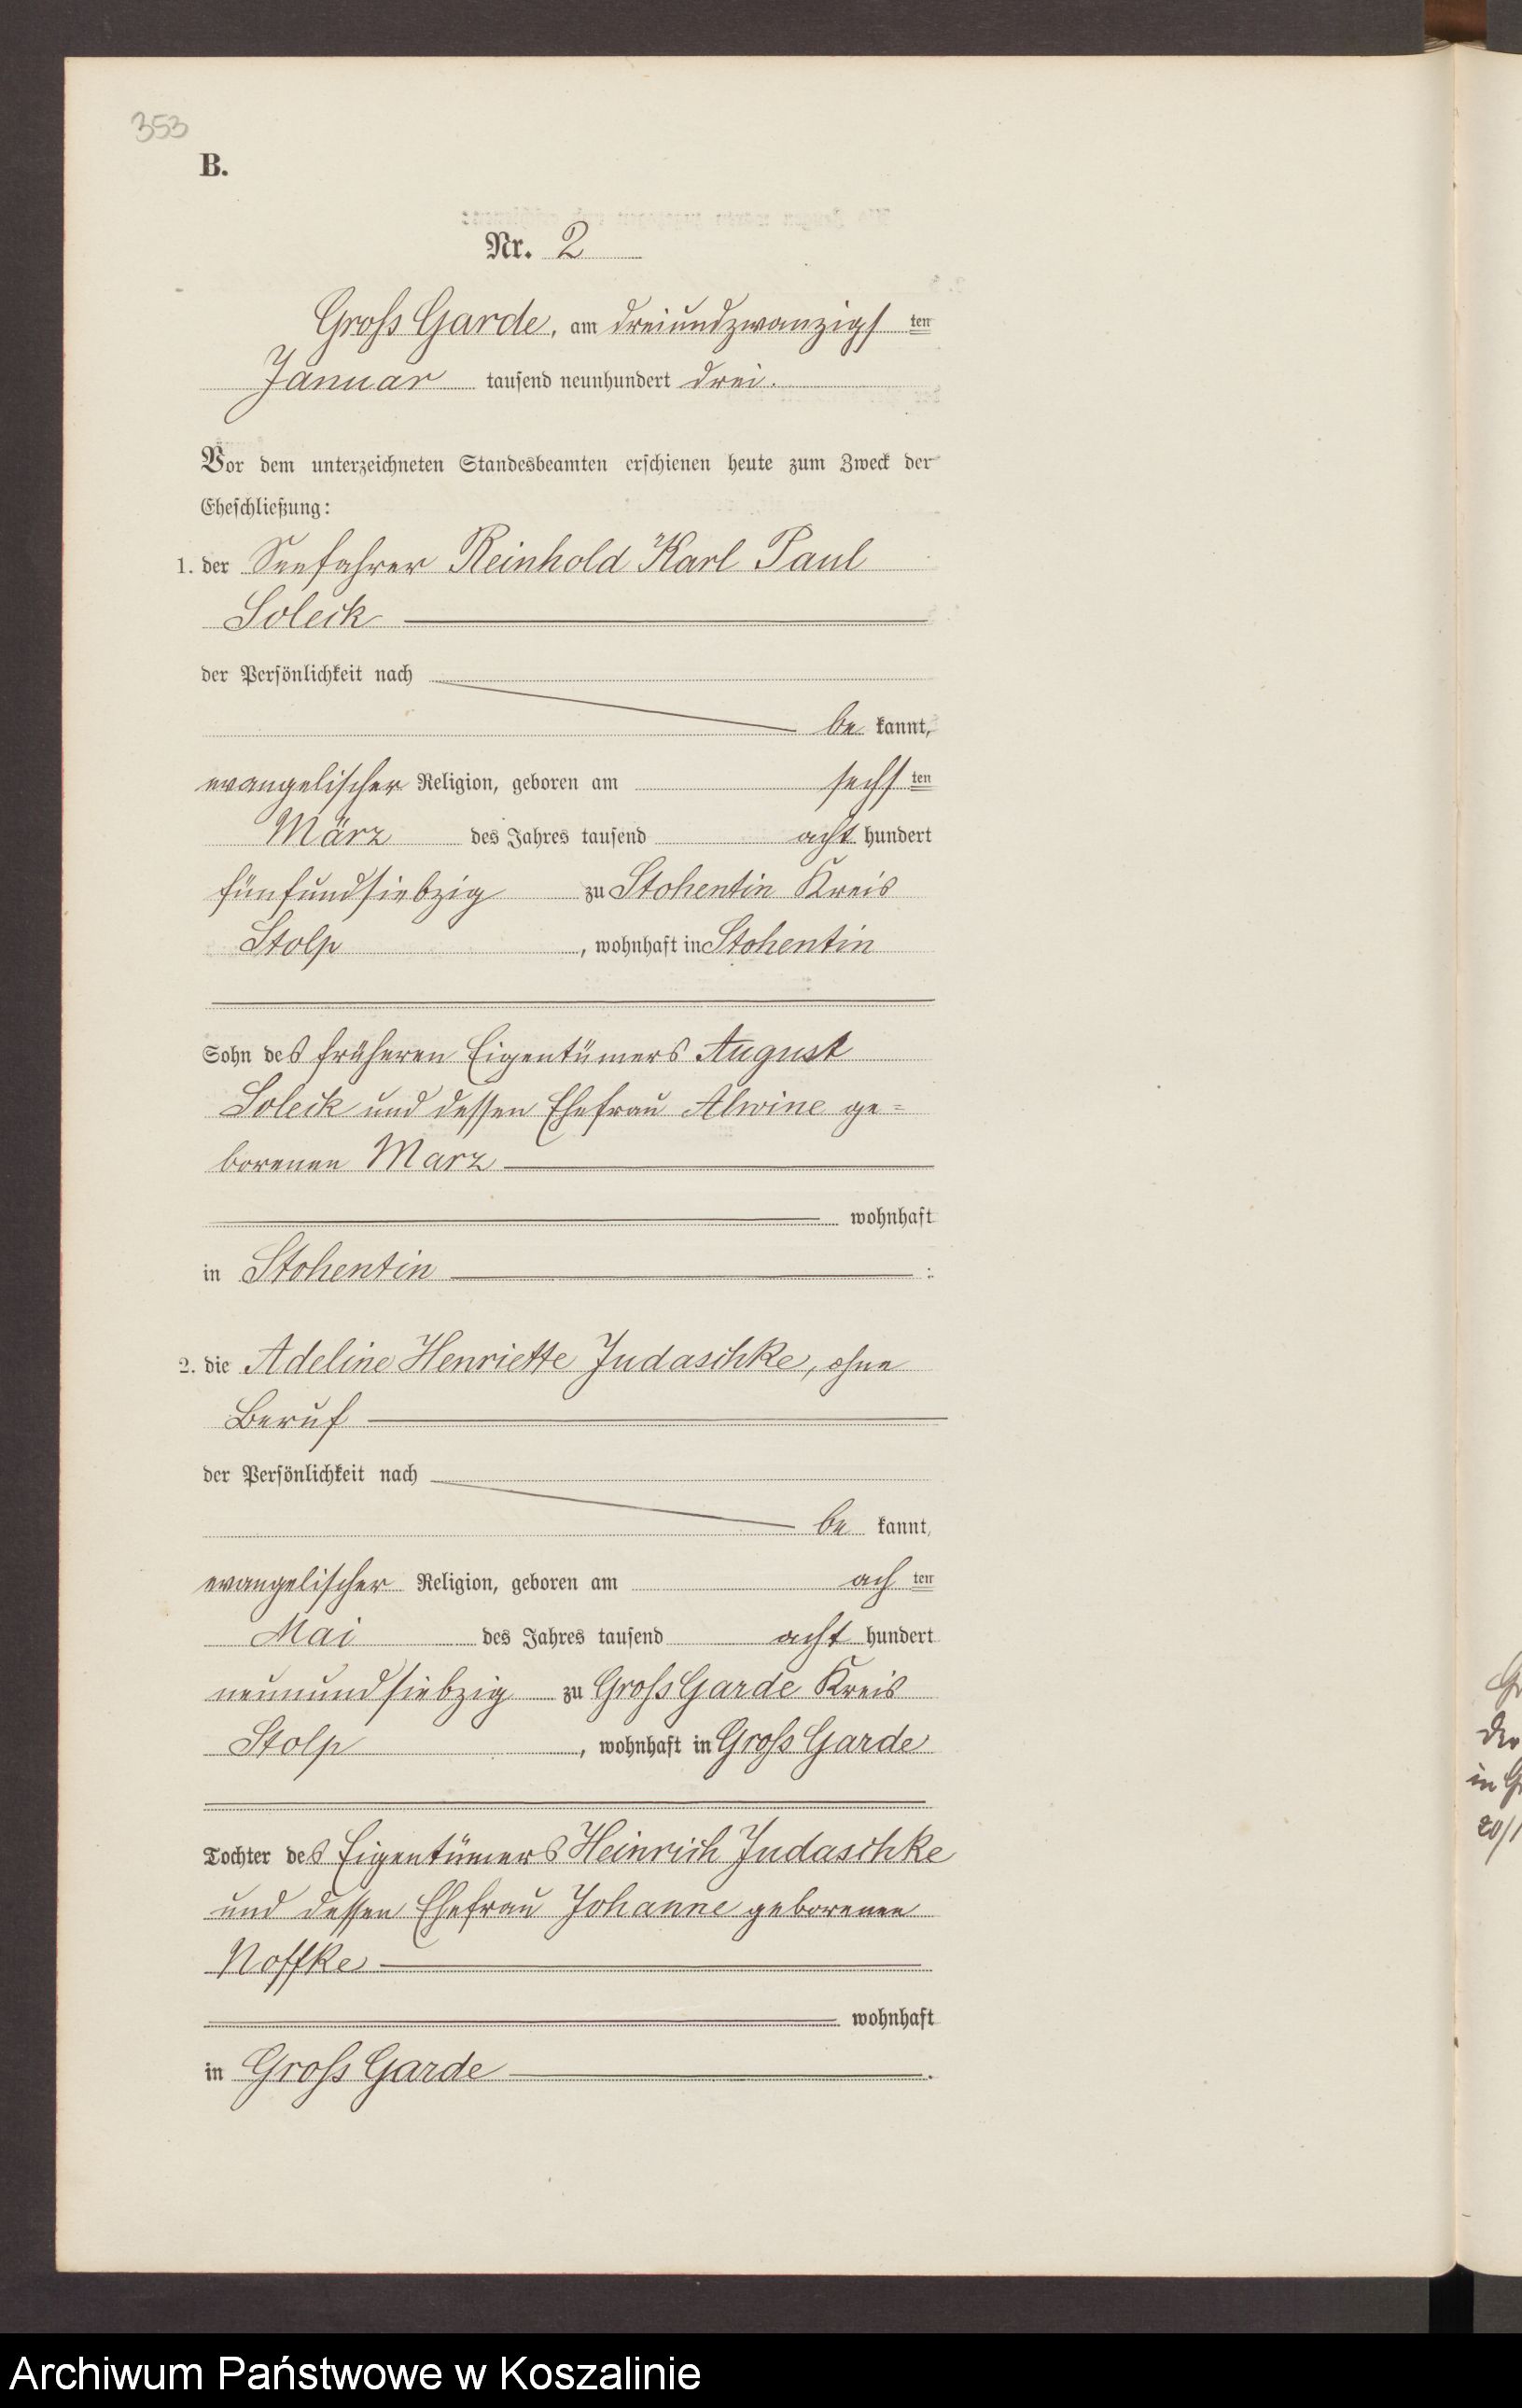 353
B.
Nr. 2
Groß Garde, am dreiundzwanzigsten
Januar tausend neunhundert drei.
Vor dem unterzeichneten Standesbeamten erschienen heute zum Zweck der
Eheschließung:
1. der Seefahrer Reinhold Karl Paul
Soleck
der Persönlichkeit nach
be kannt,
evangelischer Religion, geboren am sechsten
März des Jahres tausend acht hundert
fünfundsiebzig zu Stohentin Kreis
Stolp, wohnhaft in Stohentin
Sohn des früheren Eigentümers August
Soleck und dessen Ehefrau Alwine ge=
borenen Marz
wohnhaft
in Stohentin :
2. die Adeline Henriette Judaschke, ohne
Beruf
der Persönlichkeit nach
be kannt,
evangelischer Religion, geboren am achten
Mai des Jahres tausend acht hundert
neunundsiebzig zu Groß Garde Kreis
Stolp, wohnhaft in Groß Garde
Tochter des Eigentümers Heinrich Judaschke
und dessen Ehefrau Johanne geborenen
Noffke
wohnhaft
in Groß Garde.
Archiwum Państwowe w Koszalinie